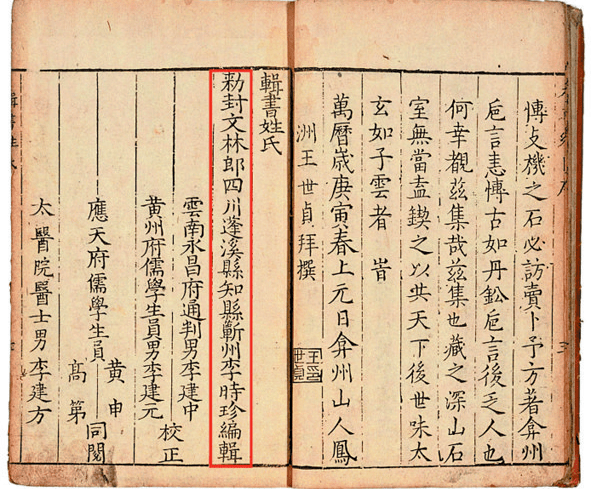 愽支機之石必訪賣卜予方著弇州
巵言恚愽古如丹鈆巵言後乏人也
何幸覩兹集哉兹集也藏之深山石
室無當盍鍥之以共天下後世味太
玄如子雲者 旹
萬曆歳庚寅春上元日弇州山人鳳
洲王世貞拜撰
輯書姓氏
勑封文林郎四川蓬溪縣知縣蘄州李時珍編輯
雲南永昌府通判男李建中
黃州府儒學生員男李建元
校正
應天府儒學生員
黃申
高第
同閱
太醫院醫士男李建方